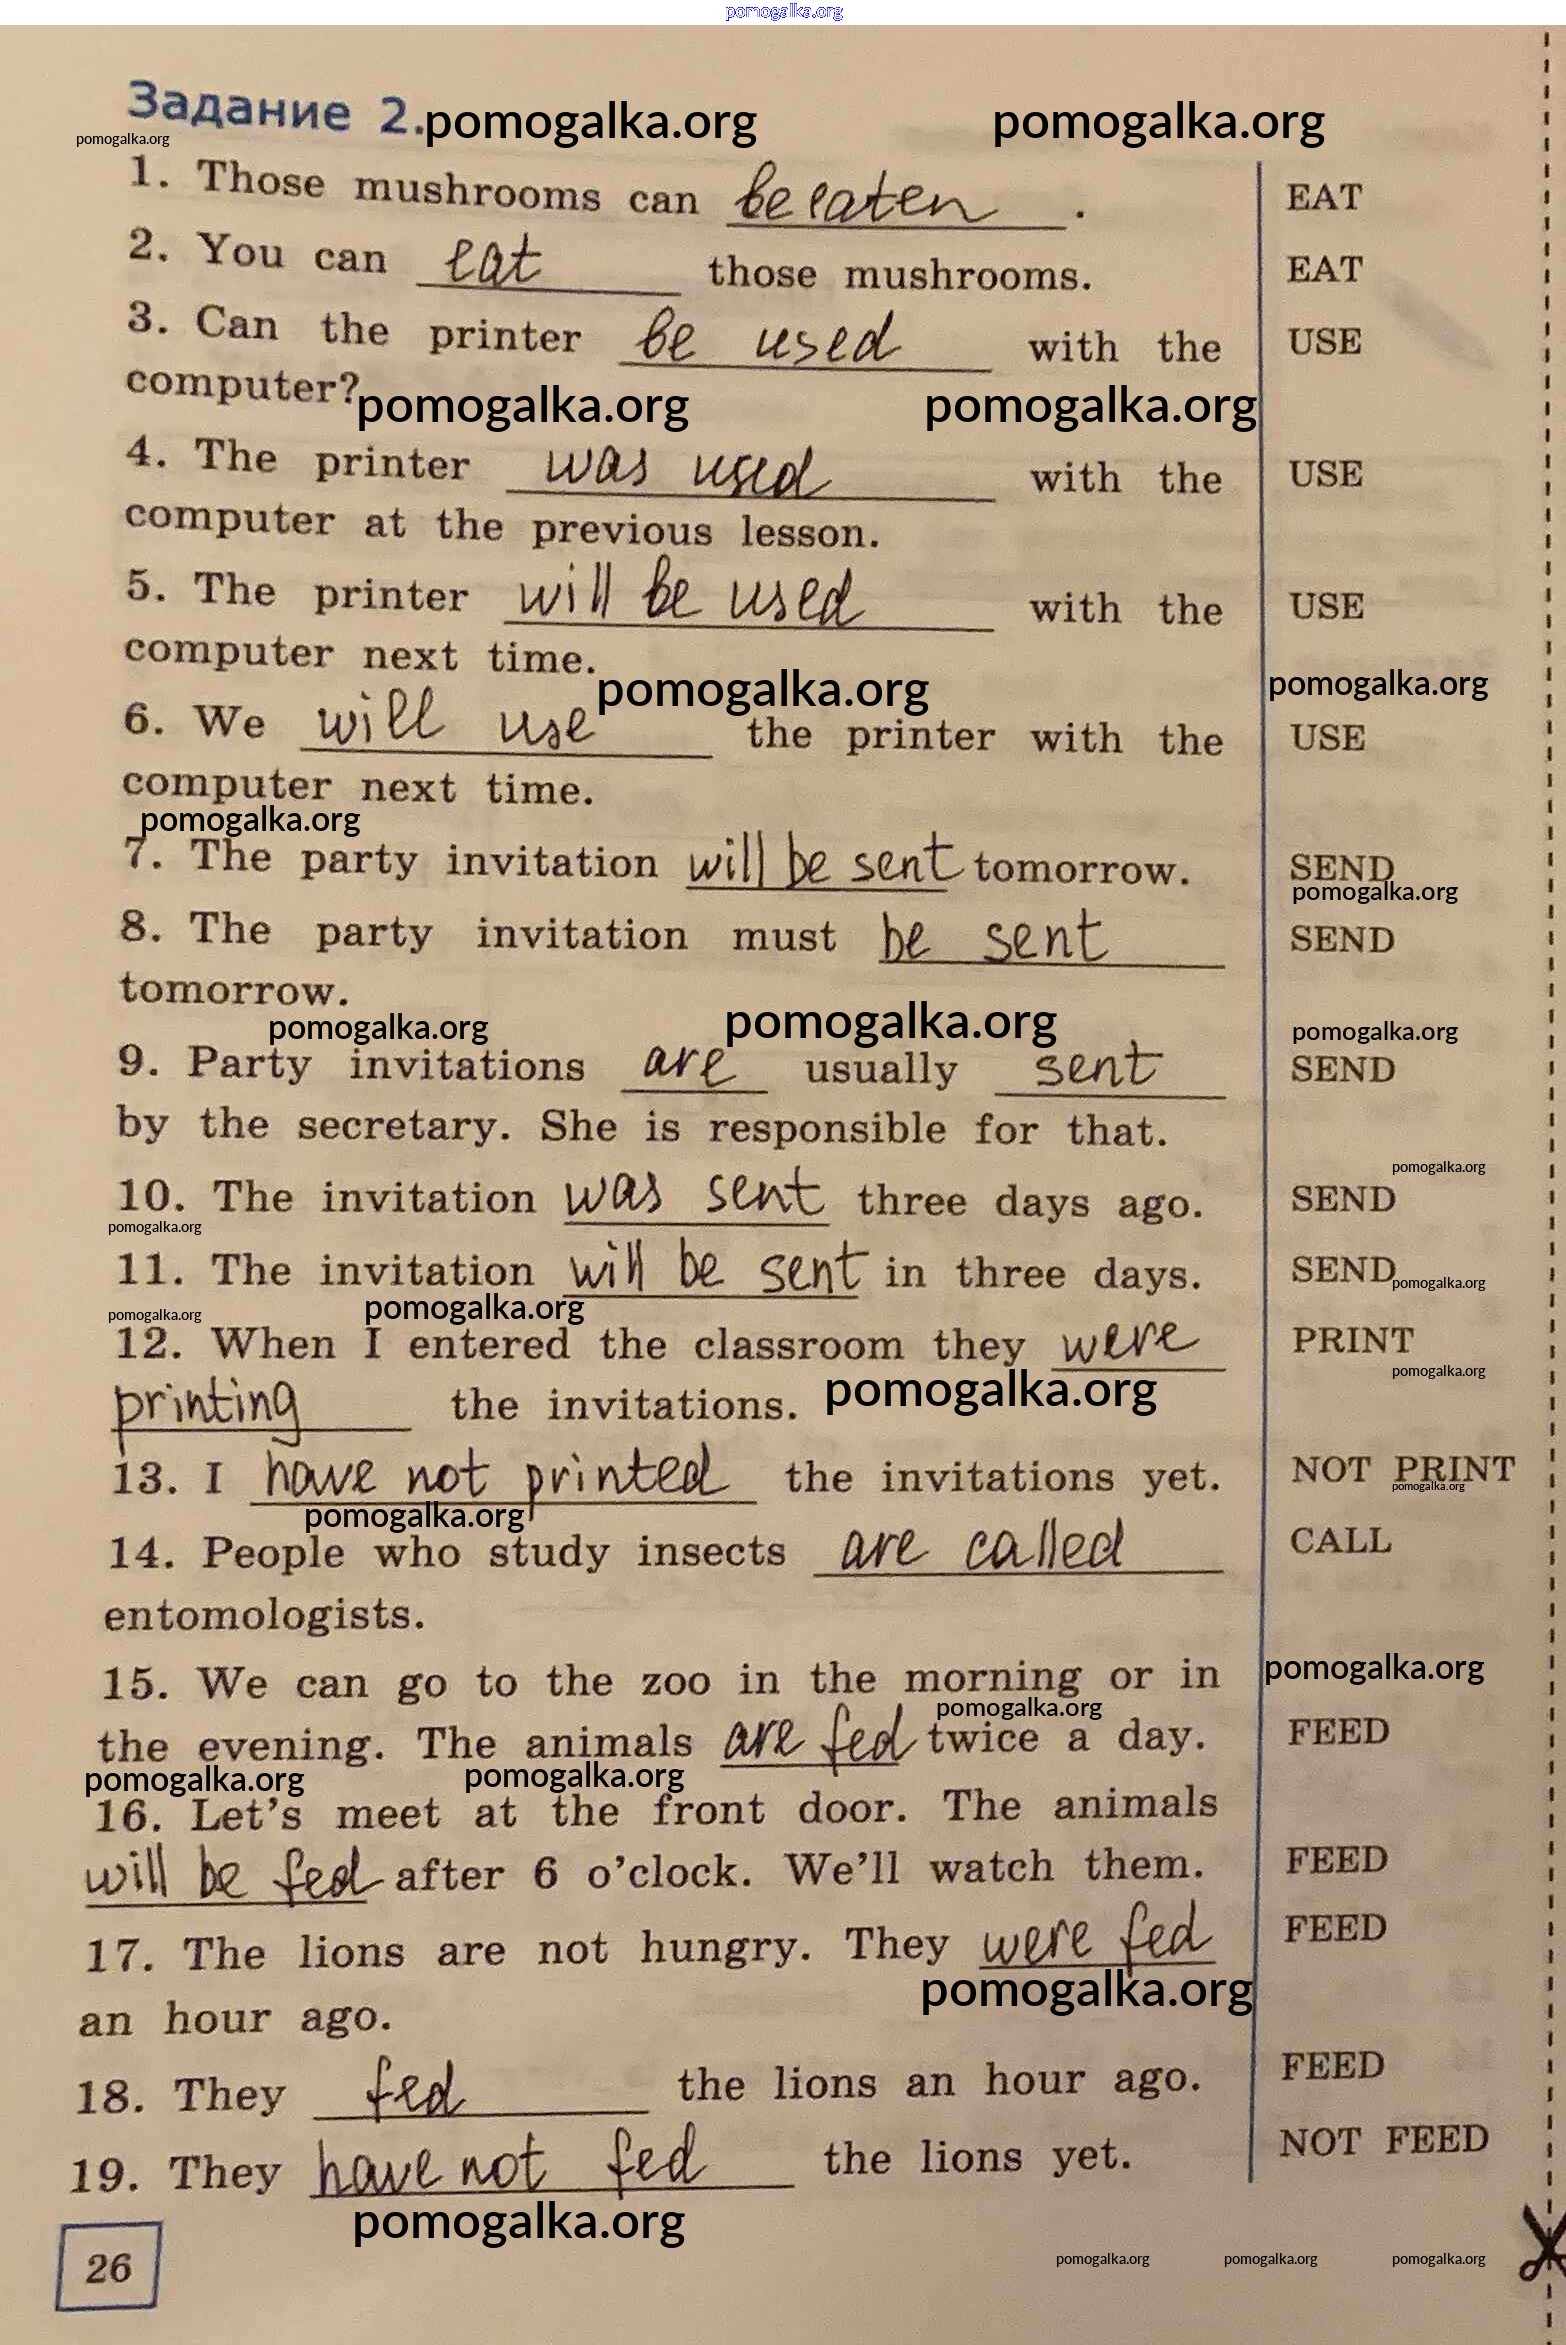 pomogalka.org
Задание 2. pomogalka.org pomogalka.org
pomogalka.org
1. Those mushrooms can be eaten . EAT
2. You can eat those mushrooms. EAT
3. Can the printer be used with the USE
computer? pomogalka.org pomogalka.org
4. The printer was used with the USE
computer at the previous lesson.
5. The printer will be used with the USE
computer next time.
pomogalka.org pomogalka.org
6. We will use the printer with the USE
computer next time.
pomogalka.org
7. The party invitation will be sent tomorrow. SEND
pomogalka.org
8. The party invitation must be sent SEND
tomorrow.
pomogalka.org pomogalka.org pomogalka.org
9. Party invitations are usually sent SEND
by the secretary. She is responsible for that.
pomogalka.org
10. The invitation was sent three days ago. SEND
pomogalka.org
11. The invitation will be sent in three days. SEND
pomogalka.org
pomogalka.org pomogalka.org
12. When I entered the classroom they were PRINT
pomogalka.org pomogalka.org
printing the invitations.
13. I have not printed the invitations yet. NOT PRINT
pomogalka.org
pomogalka.org
14. People who study insects are called CALL
entomologists.
15. We can go to the zoo in the morning or in
pomogalka.org
pomogalka.org
the evening. The animals are fed twice a day. FEED
pomogalka.org pomogalka.org
16. Let's meet at the front door. The animals
will be fed after 6 o'clock. We'll watch them. FEED
17. The lions are not hungry. They were fed FEED
pomogalka.org
an hour ago.
18. They fed the lions an hour ago. FEED
19. They have not fed the lions yet. NOT FEED
pomogalka.org
26
pomogalka.org pomogalka.org pomogalka.org